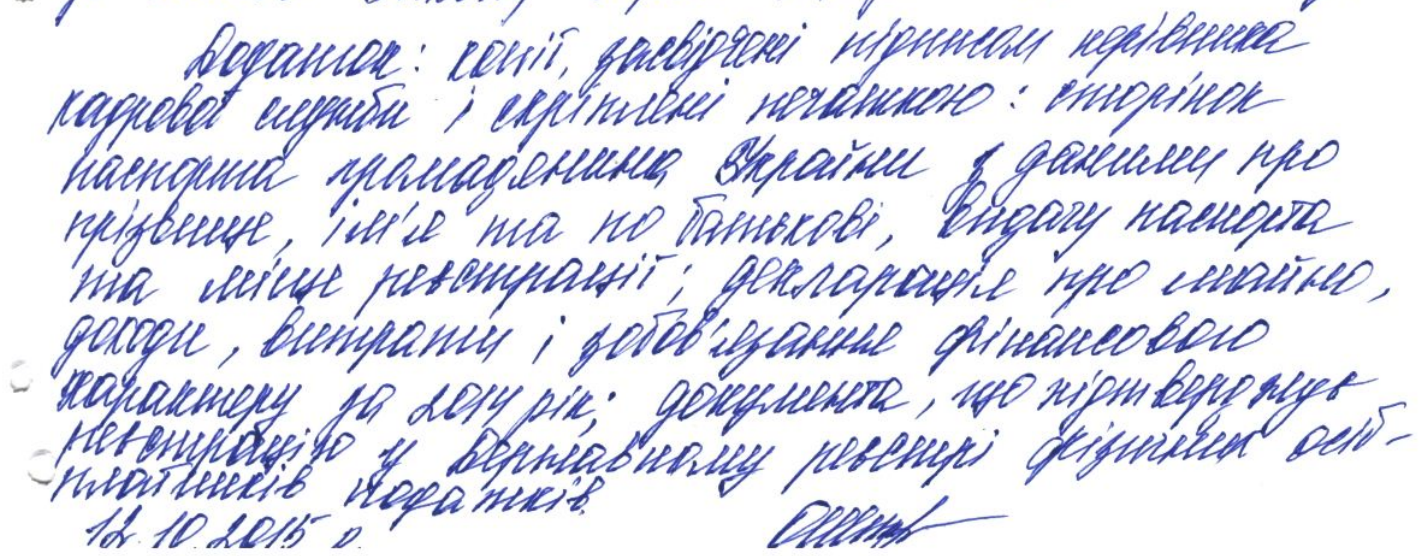 Додаток: копії, засвідчені підписом керівника
кадрової служби і скріплені печаткою: сторінок
паспорта громадянина України з даними про
прізвище, ім'я та по батькові, видачу паспорта
та місце реєстрації; декларація про майно,
доходи, витрати і зобов'язання фінансового
характеру за 2014 рік; документа, що підтверджує
реєстрацію у Державному реєстрі фізичних осіб-
платників податків.
12.10.2015 р.